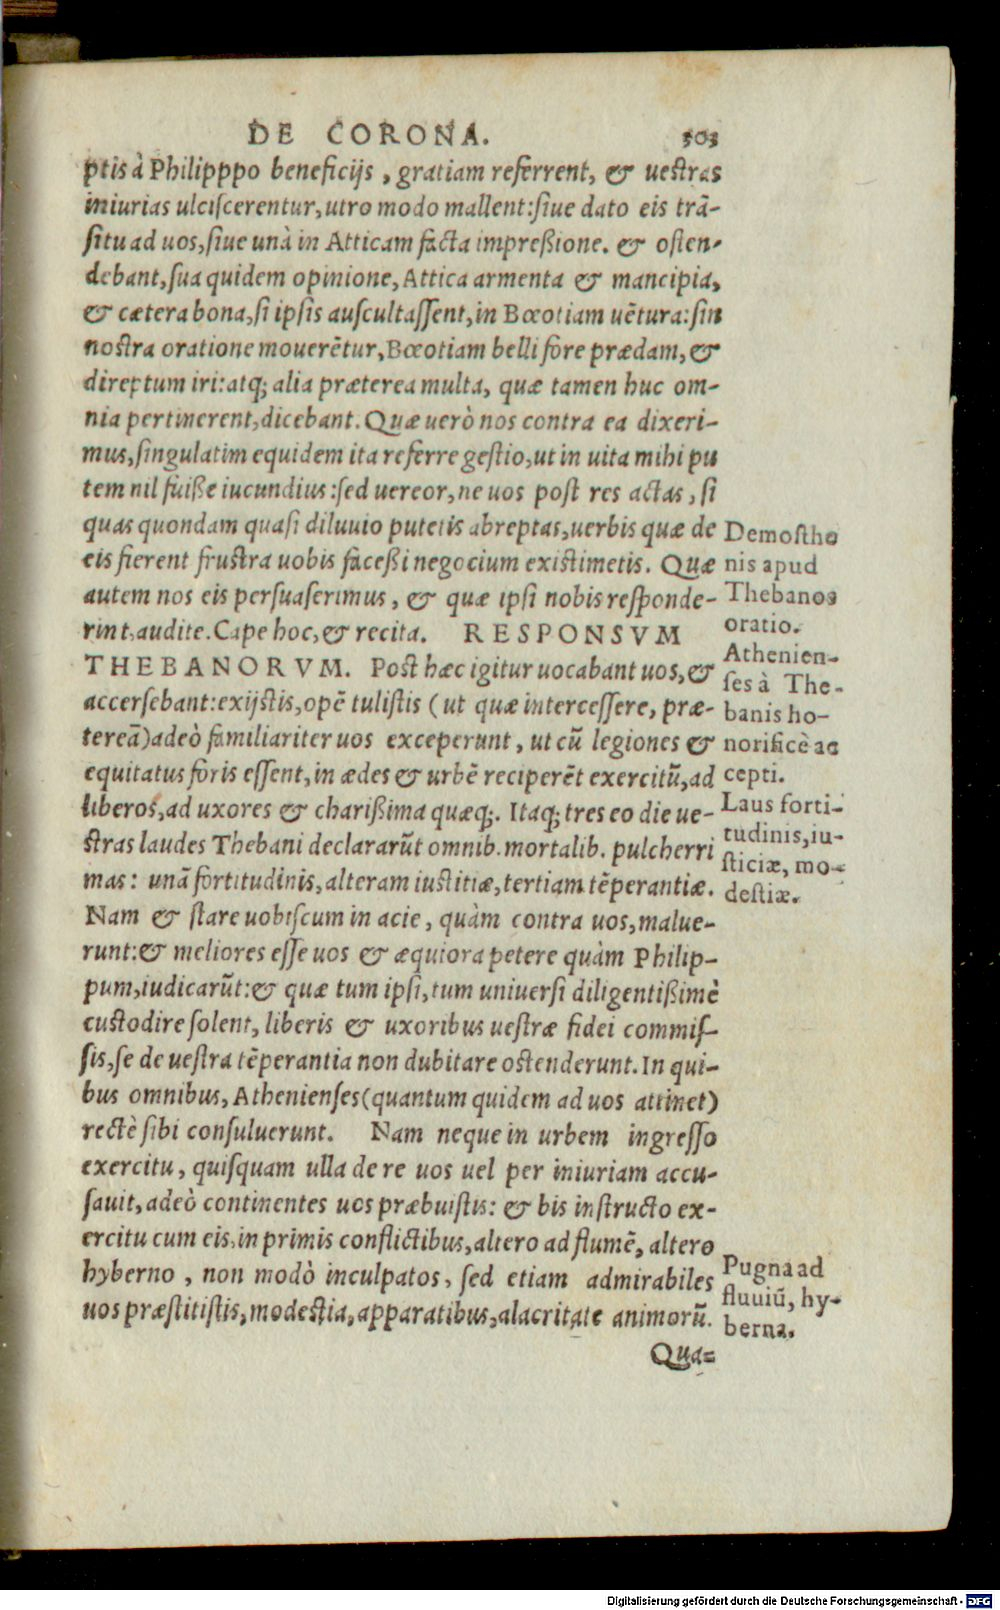 DE CORONA. 303
ptis à Philipppo beneficijs, gratiam referrent, & uestras
iniurias ulciscerentur, utro modo mallent: siue dato eis trā-
situ ad uos, siue unà in Atticam facta impreßione. & osten-
debant, sua quidem opinione, Attica armenta & mancipia,
& cætera bona, si ipsis auscultassent, in Bœotiam uētura: sin
nostra oratione mouerētur, Bœotiam belli fore prædam, &
direptum iri: atq; alia præterea multa, quæ tamen huc om-
nia pertinerent, dicebant. Quæ uerò nos contra ea dixeri-
mus, singulatim equidem ita referre gestio, ut in uita mihi pu
tem nil fuiße iucundius: sed uereor, ne uos post res actas, si
quas quondam quasi diluuio putetis abreptas, uerbis quæ de
eis fierent frustra uobis faceßi negocium existimetis. Quæ
autem nos eis persuaserimus, & quæ ipsi nobis responde-
rint, audite. Cape hoc, & recita. RESPONSVM
THEBANORVM. Post hæc igitur uocabant uos, &
accersebant: exijstis, opē tulistis (ut quæ intercessere, præ-
tereā) adeò familiariter uos exceperunt, ut cū legiones &
equitatus foris essent, in ædes & urbē reciperēt exercitū, ad
liberos, ad uxores & charißima quæq;. Itaq; tres eo die ue-
stras laudes Thebani declararūt omnib. mortalib. pulcherri
mas: unā fortitudinis, alteram iustitiæ, tertiam tēperantiæ.
Nam & stare uobiscum in acie, quàm contra uos, malue-
runt: & meliores esse uos & æquiora petere quàm Philip-
pum, iudicarūt: & quæ tum ipsi, tum uniuersi diligentißimè
custodire solent, liberis & uxoribus uestræ fidei commis-
sis, se de uestra tēperantia non dubitare ostenderunt. In qui-
bus omnibus, Athenienses (quantum quidem ad uos attinet)
rectè sibi consuluerunt. Nam neque in urbem ingresso
exercitu, quisquam ulla de re uos uel per iniuriam accu-
sauit, adeò continentes uos præbuistis: & bis instructo ex-
ercitu cum eis, in primis conflictibus, altero ad flumē, altero
hyberno, non modò inculpatos, sed etiam admirabiles
uos præstitistis, modestia, apparatibus, alacritate animorū.
Qua=
Demosthe
nis apud
Thebanos
oratio.
Athenien-
ses à The-
banis ho-
norificè ac
cepti.
Laus forti-
tudinis, iu-
sticiæ, mo-
destiæ.
Pugna ad
fluuiū, hy-
berna.
Digitalisierung gefördert durch die Deutsche Forschungsgemeinschaft - DFG